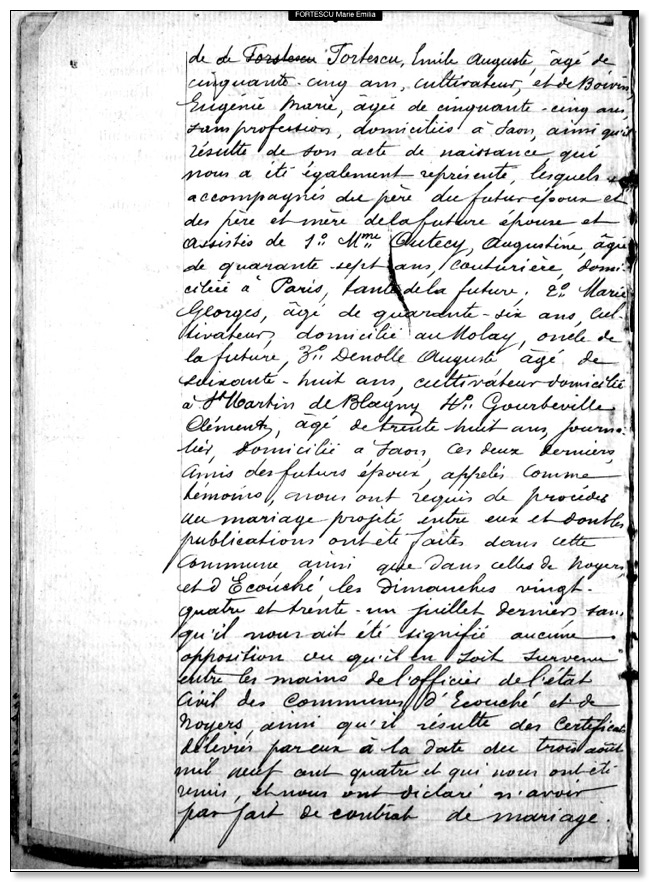 FORTESCU Marie Emilia
de de Forstescu Fortescu, Emile Auguste âgé de
cinquante-cinq ans, cultivateur, et de Boivin
Eugénie Marie, âgée de cinquante-cinq ans,
sans profession, domiciliés à Saon, ainsi qu'il
résulte de son acte de naissance qui
nous a été également représenté, lesquels
accompagnés du père du futur époux et
des père et mère de la future épouse et
assistés de 1º Mme Autecy, Augustine, âgée
de quarante-sept ans, couturière, domi-
ciliée à Paris, tante de la future; 2º Marie
Georges, âgé de quarante-six ans, cul-
tivateur, domicilié au Molay, oncle de
la future, 3º Denolle Auguste âgé de
soixante-huit ans, cultivateur domicilié
à St Martin de Blagny 4º Gourbeville
Clément, âgé de trente huit ans, journa-
lier, domicilié à Saon, ces deux derniers,
amis des futurs époux, appelés comme
témoins, nous ont requis de procéder
au mariage projeté entre eux et dont les
publications ont été faites dans cette
commune ainsi que dans celles de Noyers
et d'Ecouché les Dimanches vingt-
quatre et trente-un juillet derniers sans
qu'il nous ait été signifié aucune
opposition ou qu'il en soit survenu
entre les mains de l'officier de l'état
civil des communes d'Ecouché et de
Noyers, ainsi qu'il résulte des certificats
délivrés par eux à la date du trois août
mil neuf cent quatre et qui nous ont été
remis, et nous ont déclaré n'avoir
pas fait de contrat de mariage.